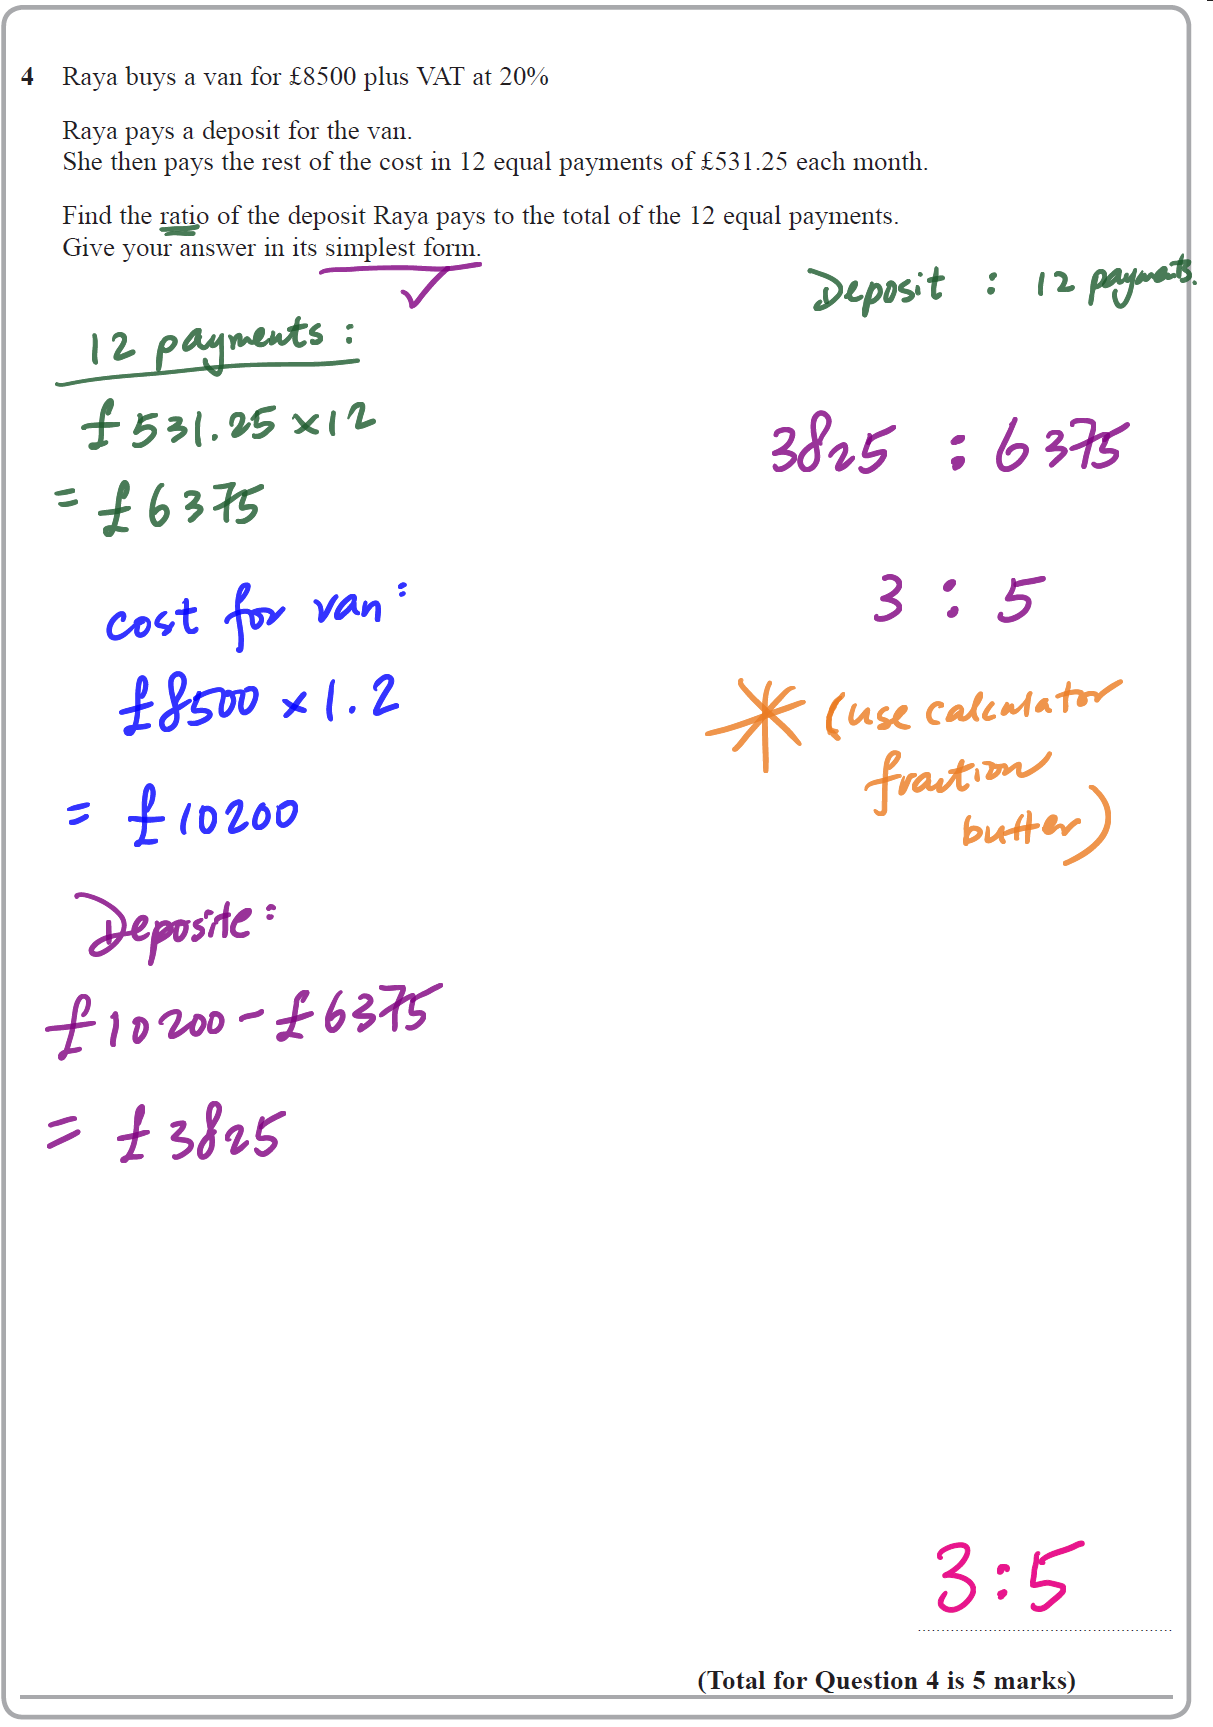 4 Raya buys a van for £8500 plus VAT at 20%
Raya pays a deposit for the van.
She then pays the rest of the cost in 12 equal payments of £531.25 each month.
Find the ratio of the deposit Raya pays to the total of the 12 equal payments.
Give your answer in its simplest form.
Deposit : 12 payments
12 payments :
£531.25 × 12
= £6375
cost for van :
£8500 × 1.2
= £10200
Deposite :
£10200 - £6375
= £3825
3825 : 6375
3 : 5
(use calculator
fraction
butter)
3 : 5
(Total for Question 4 is 5 marks)